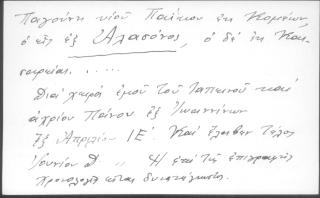 Παγούνη υἱοῦ Παύκου ἐκ Κομάνων,
ὁ εἷς ἐξ Ἀλασόνος, ὁ δὲ ἐκ Και-
σαρείας. . . . . .
Διὰ χειρὸς ἐμοῦ τοῦ ταπεινοῦ καὶ
ἀχρίου Πάνου ἐξ Ἰωαννίνων
Ἀπριλίου ΙΕ´ καὶ ἔλαβεν τέλος
Ἰουνίου Δ „ Ἡ ἐπὶ τῆς ἐπιγραφῆς
χρονολογία εἶναι δυσανάγνωστος.